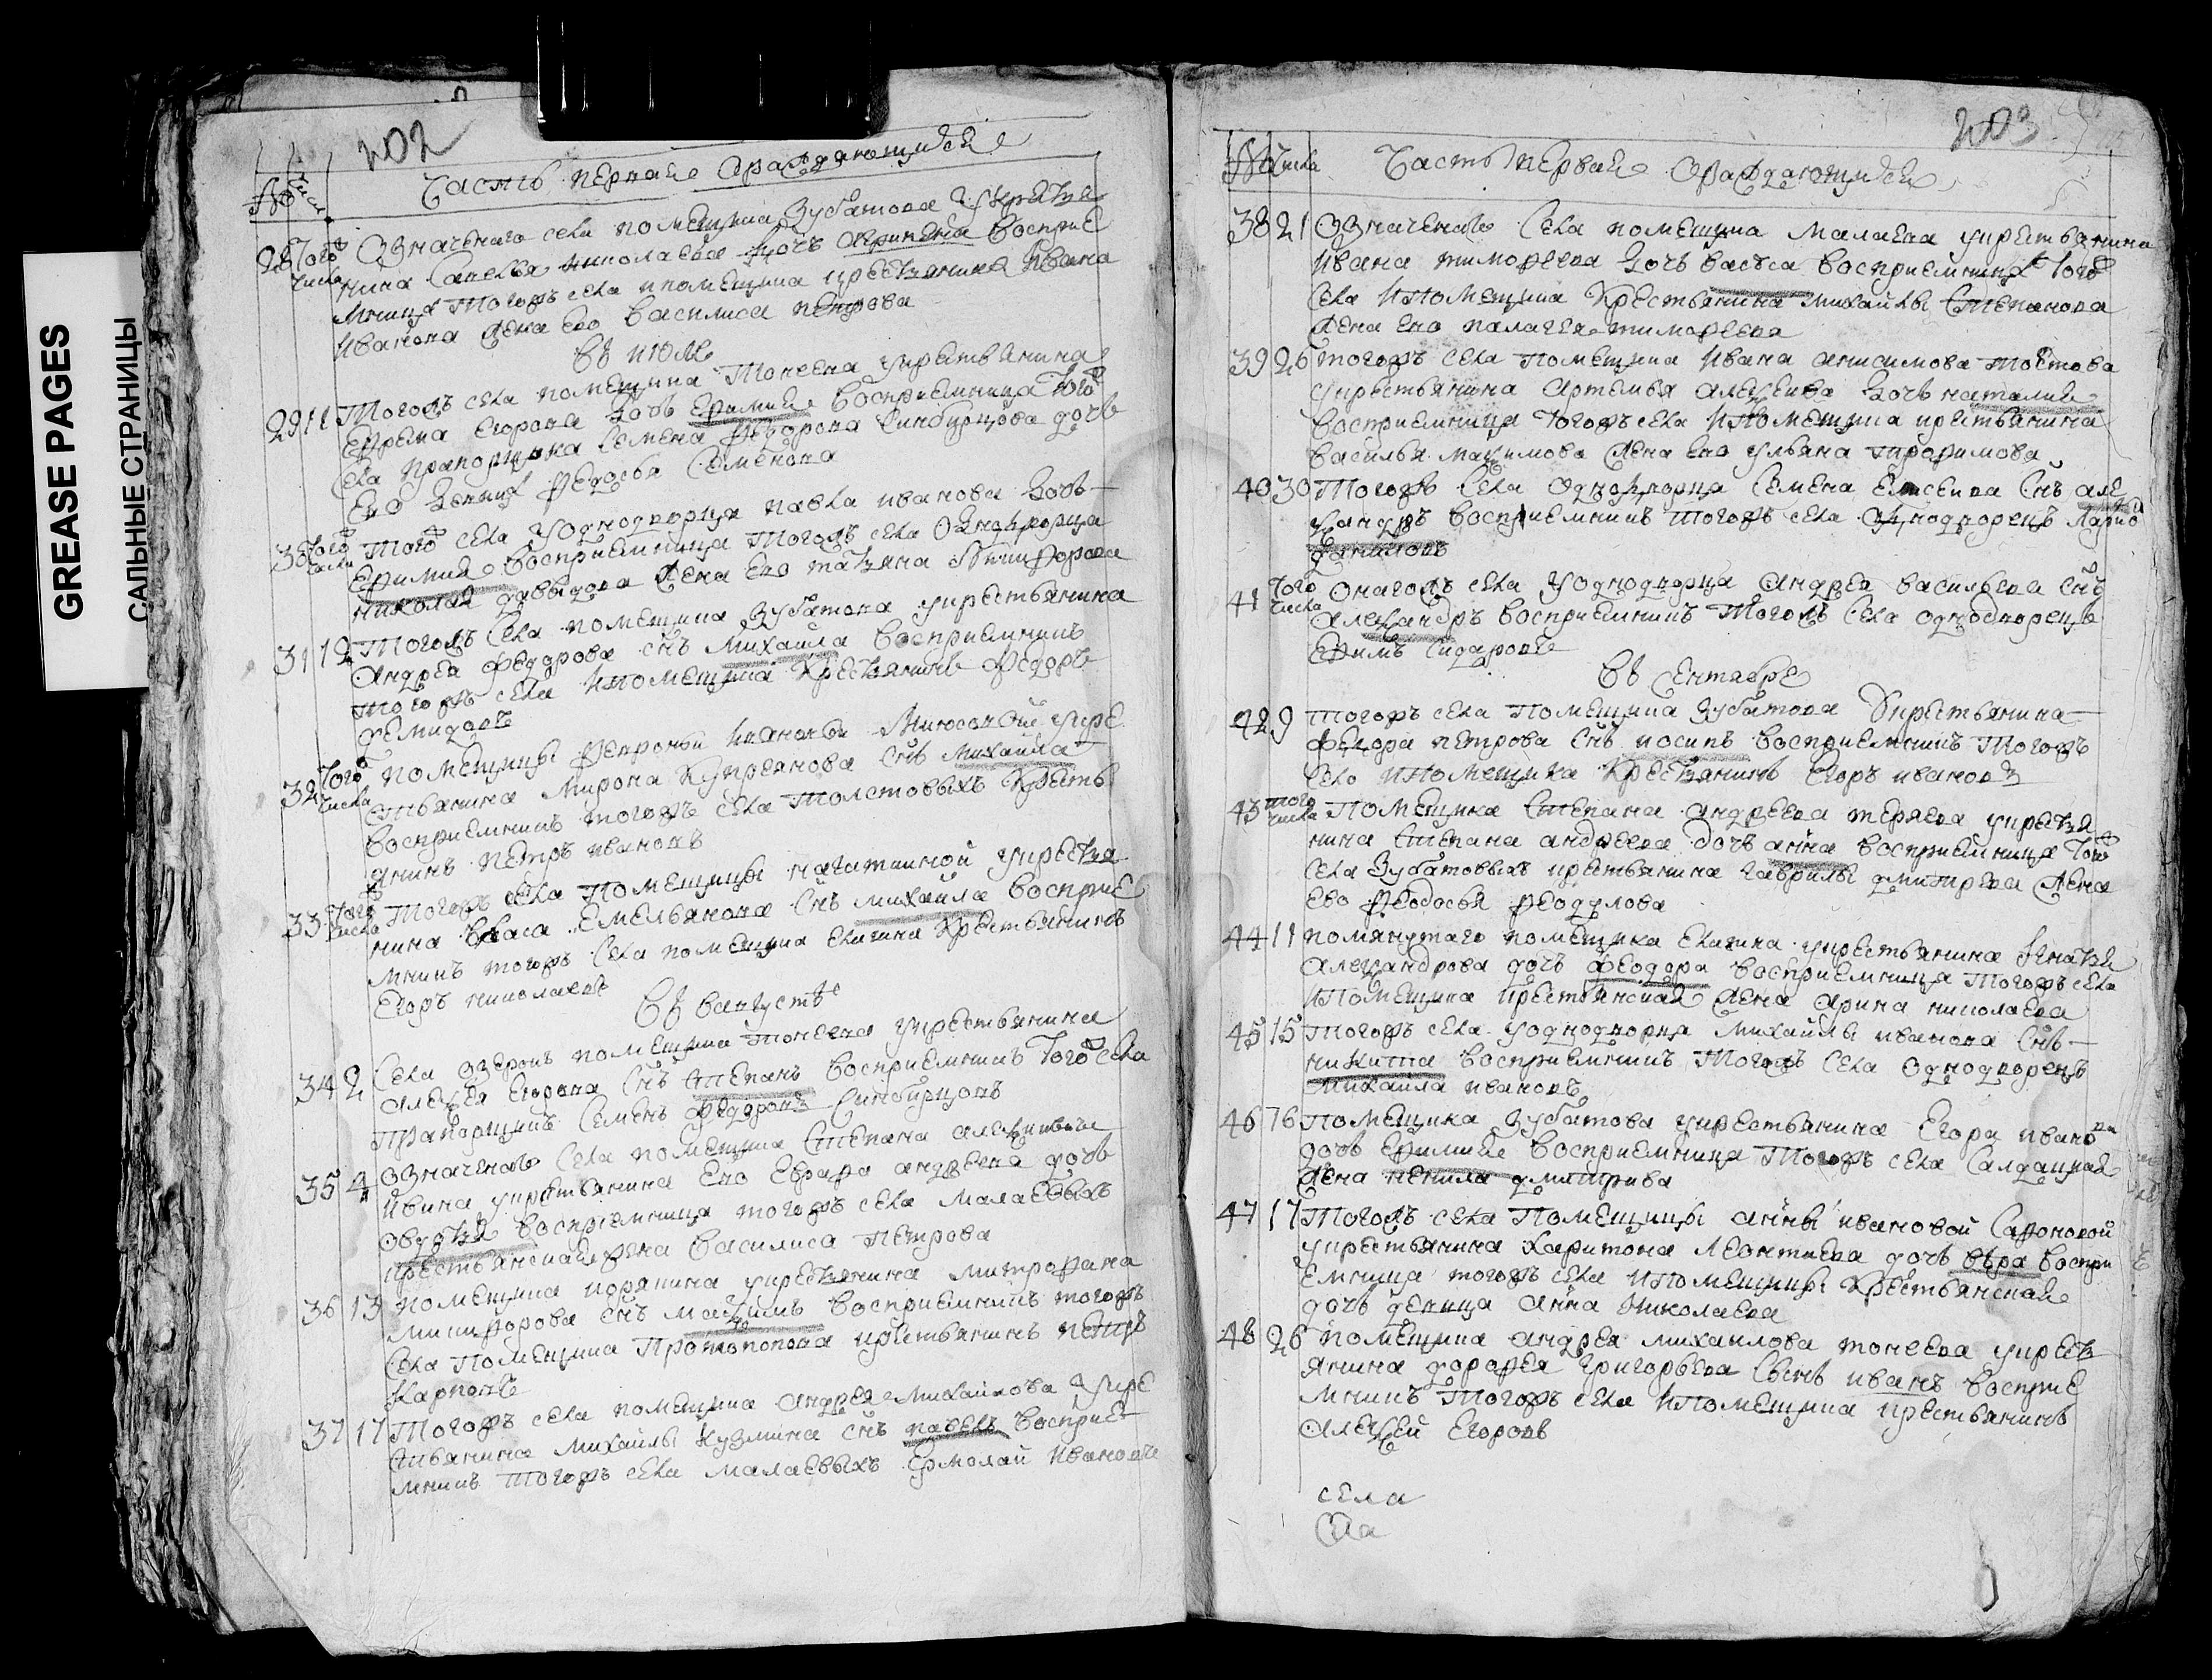 GREASE PAGES
САЛЬНЫЕ СТРАНИЦЫ
202
№ числ
Часть первая ораждающихся
28 того числа Означенаго села помещика Зубатова укрестья
нина Савелья николаева дочь агрипена восприе
мница тогожъ села ипомещика крестьянина Ивана
Иванова жена ево василиса петрова
Въ июле
29 11 Тогожъ села помещика Тонеева укрестьянина
Ефрема егорова дочь ефимия восприемница того
села прапорщика Семена федорова Синбирцова дочь
ево девица федосья Семенова
30 того числа того села уоднодворца павла иванова дочь
Ефимия восприемница тогожъ села Однодворца
николая давыдова жена ево татьяна Никифорова
31 12 Тогожъ села помещика Зубатова укрестьянина
Андрея федорова снъ михайла восприемникъ
тогожъ села ипомещика крестьянинъ федоръ
демидовъ
32 того числа помещицы февроньи ивановы укре
стьянина мирона куприянова снъ михайла
восприемникъ тогожъ села толстовыхъ кресть
янинъ петръ ивановъ
33 того числа Тогожъ села помещицы нагаткиной укрестья
нина власа емельянова снъ михайла восприе
мникъ тогожъ села помещика елагина крестьянинъ
Егоръ николаевъ
Въ августе
34 2 Села озеровъ помещика тонеева укрестьянина
алексея егорова снъ степанъ восприемникъ того села
прапорщикъ семенъ федоровъ Синбирцовъ
35 4 означенаго села помещика Степана алексеевича
ивина укрестьянина ево андреева дочь
Овдотья восприемница тогожъ села малаевыхъ
крестьянская жена василиса петрова
36 13 помещика укрестьянина митрофана
микифорова снъ максимъ восприемникъ тогожъ
села помещика Протопопова крестьянинъ петръ
Карповъ
37 17 Тогожъ села помещика андрея михайлова укре
стьянина михайлы кузмина снъ павелъ восприе
мникъ тогожъ села малаевыхъ ермолай ивановъ
203
№ числа
Часть первая ораждающихся
38 21 Означенаго села помещика малаева укрестьянина
ивана тимофеева дочь васса восприемница того
села ипомещика крестьянина михайлы степанова
жена ево палагея тимофеева
39 26 тогожъ села помещика ивана анисимова толстова
укрестьянина артемья алексеева дочь наталия
восприемница тогожъ села ипомещика крестьянина
василья максимова жена ево ульяна трофимова
40 30 Тогожъ села однодворца семена елисеива снъ але
ксандръ восприемникъ тогожъ села однодворецъ
даниловъ
41 того числа Онагожъ села уоднодворца андрея васильева снъ
александръ восприемникъ тогожъ села однодворецъ
ефимъ сидаровъ
Въ сентябре
42 9 тогожъ села помещика зубатова укрестьянина
федора петрова снъ иосипъ восприемникъ тогожъ
села ипомещика крестьянинъ егоръ ивановъ
43 того числа помещика степана андреева теряева укрестья
нина степана андреева дочь анна восприемница того
села зубатовыхъ крестьянина гаврилы дмитрева жена
ево феодосья феодулова
44 11 помянутаго помещика елагина укрестьянина игнатья
александрова дочь феодора восприемница тогожъ села
ипомещика крестьянская жена арина николаева
45 15 тогожъ села уоднодворца михайлы иванова снъ
никита восприемникъ тогожъ села однодворецъ
михайла ивановъ
46 16 помещика зубатова укрестьянина егора иванова
дочь ефимия восприемница тогожъ села салдацкая
жена ненила дмитрива
47 17 Тогожъ села помещицы анны ивановой сафоновой
укрестьянина харитона леонтиева дочь вера воспри
емница тогожъ села ипомещицы крестьянская
дочь девица анна николаева
48 26 помещика андрея михаилова тонеева укресть
янина дорофея григорьева сынъ иванъ восприе
мникъ тогожъ села ипомещика крестьянинъ
алексей егоровъ
села